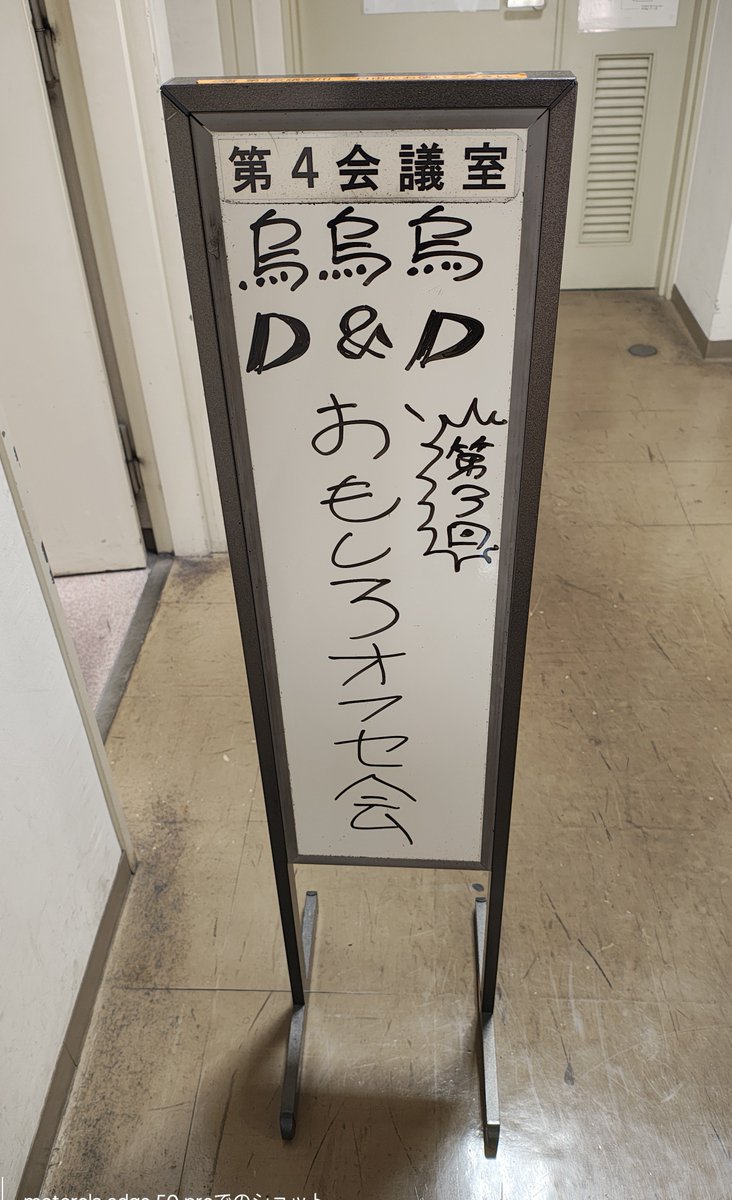 第4会議室
烏烏烏
D&D
第3回
おもしろオフセ会
motorola edge 50 proでのショット